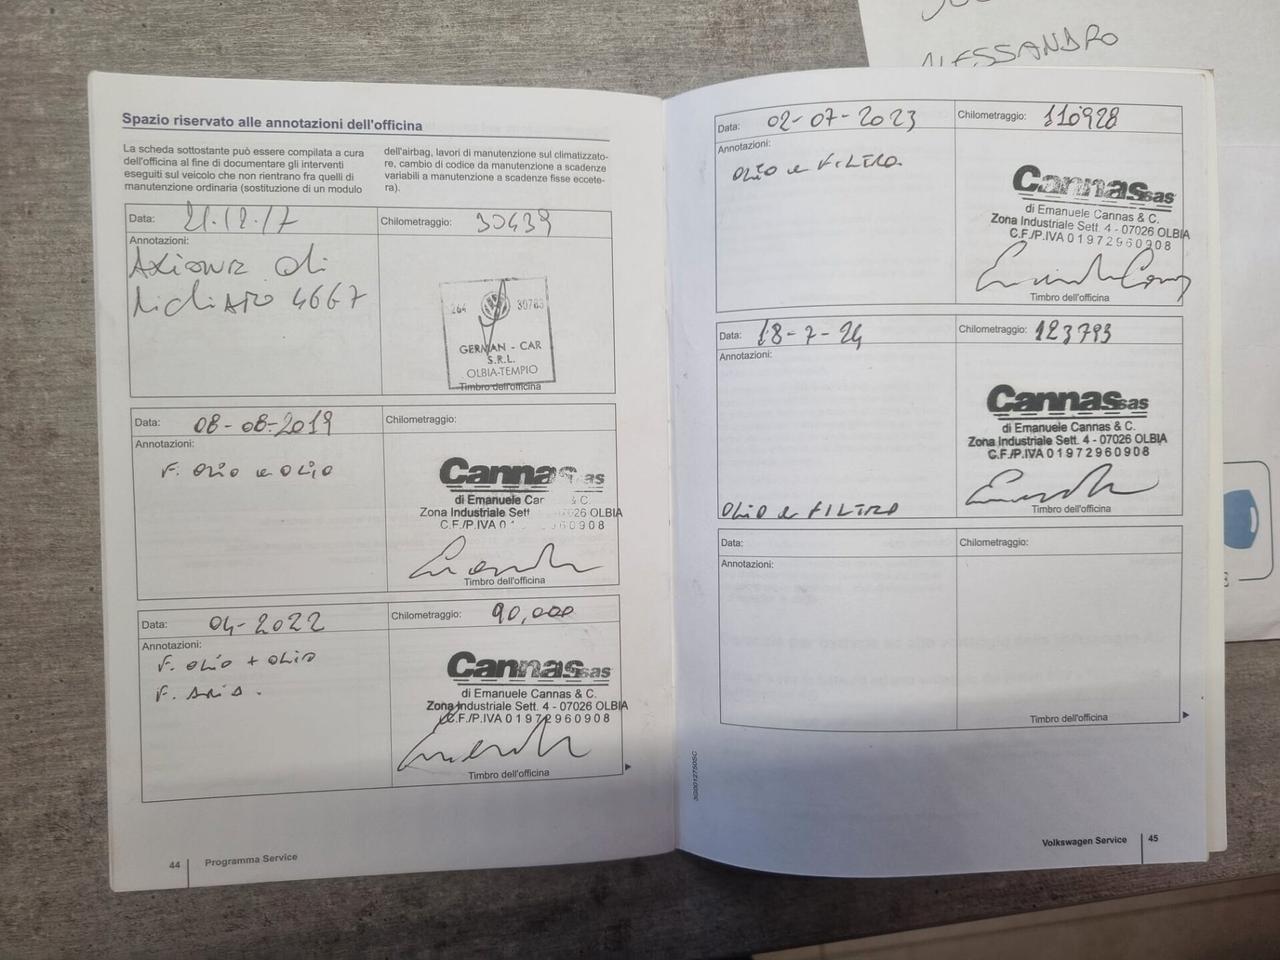 ALESSANDRO
Spazio riservato alle annotazioni dell'officina
La scheda sottostante può essere compilata a cura
dell'officina al fine di documentare gli interventi
eseguiti sul veicolo che non rientrano fra quelli di
manutenzione ordinaria (sostituzione di un modulo
dell'airbag, lavori di manutenzione sul climatizzato-
re, cambio di codice da manutenzione a scadenze
variabili a manutenzione a scadenze fisse eccete-
ra).
Data: 21.12.17 Chilometraggio: 30439
Annotazioni:
Azione di
richiamo 4667
264 30783
GERMAN - CAR
S.R.L.
OLBIA-TEMPIO
Timbro dell'officina
Data: 08-08-2019 Chilometraggio:
Annotazioni:
F. OLIO e OLIO
Cannas sas
di Emanuele Car & C.
Zona Industriale Sett 07026 OLBIA
C.F./P.IVA 0 1 6 0 9 0 8
Timbro dell'officina
Data: 04-2022 Chilometraggio: 90,000
Annotazioni:
F. OLIO + OLIO
F. ARIA.
Cannas sas
di Emanuele Cannas & C.
Zona Industriale Sett. 4 - 07026 OLBIA
C.F./P.IVA 0 1 9 7 2 9 6 0 9 0 8
Timbro dell'officina
44 Programma Service
Data: 02-07-2023 Chilometraggio: 110928
Annotazioni:
OLIO e FILTRO
Cannas sas
di Emanuele Cannas & C.
Zona Industriale Sett. 4 - 07026 OLBIA
C.F./P.IVA 0 1 9 7 2 9 6 0 9 0 8
Timbro dell'officina
Data: 18-7-24 Chilometraggio: 123793
Annotazioni:
OLIO e FILTRO
Cannas sas
di Emanuele Cannas & C.
Zona Industriale Sett. 4 - 07026 OLBIA
C.F./P.IVA 0 1 9 7 2 9 6 0 9 0 8
Timbro dell'officina
Data: Chilometraggio:
Annotazioni:
Timbro dell'officina
Volkswagen Service 45